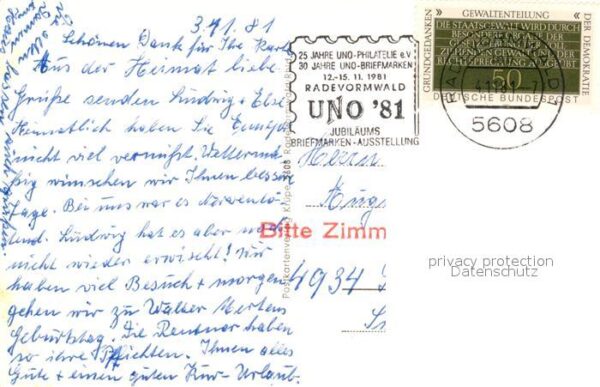 3.11.81
Schönen Dank für Ihre Karte
Aus der Heimat liebe
Grüße senden Ludwig + Else
Heimatlich haben Sie
nicht viel vermißt. Wettermä
ßig wünschen wir Ihnen bessere
Tage. Bei uns war es
und. Ludwig hat es aber
nicht wieder erwischt! Wir
haben viel Besuch + morgen
gehen wir zu Walter Mertens
Geburtstag. Die Rentner haben
so ihre Pflichten. Ihnen alles
Gute + einen guten Kur-Urlaub.
25 JAHRE UNO-PHILATELIE e.V
30 JAHRE UNO-BRIEFMARKEN
12.-15. 11. 1981
RADEVORMWALD
UNO '81
JUBILÄUMS
BRIEFMARKEN-AUSSTELLUNG
GRUNDGEDANKEN
DER DEMOKRATIE
GEWALTENTEILUNG
DIE STAATSGEWALT WIRD DURCH
BESONDERE ORGANE DER
GESETZGEBUNG DER VOLL
ZIEHENDEN GEWALT UND DER
RECHTSPRECHUNG AUSGEÜBT
50
DEUTSCHE BUNDESPOST
5608
Herrn
Aug
Bitte Zimm
4934
privacy protection
Datenschutz